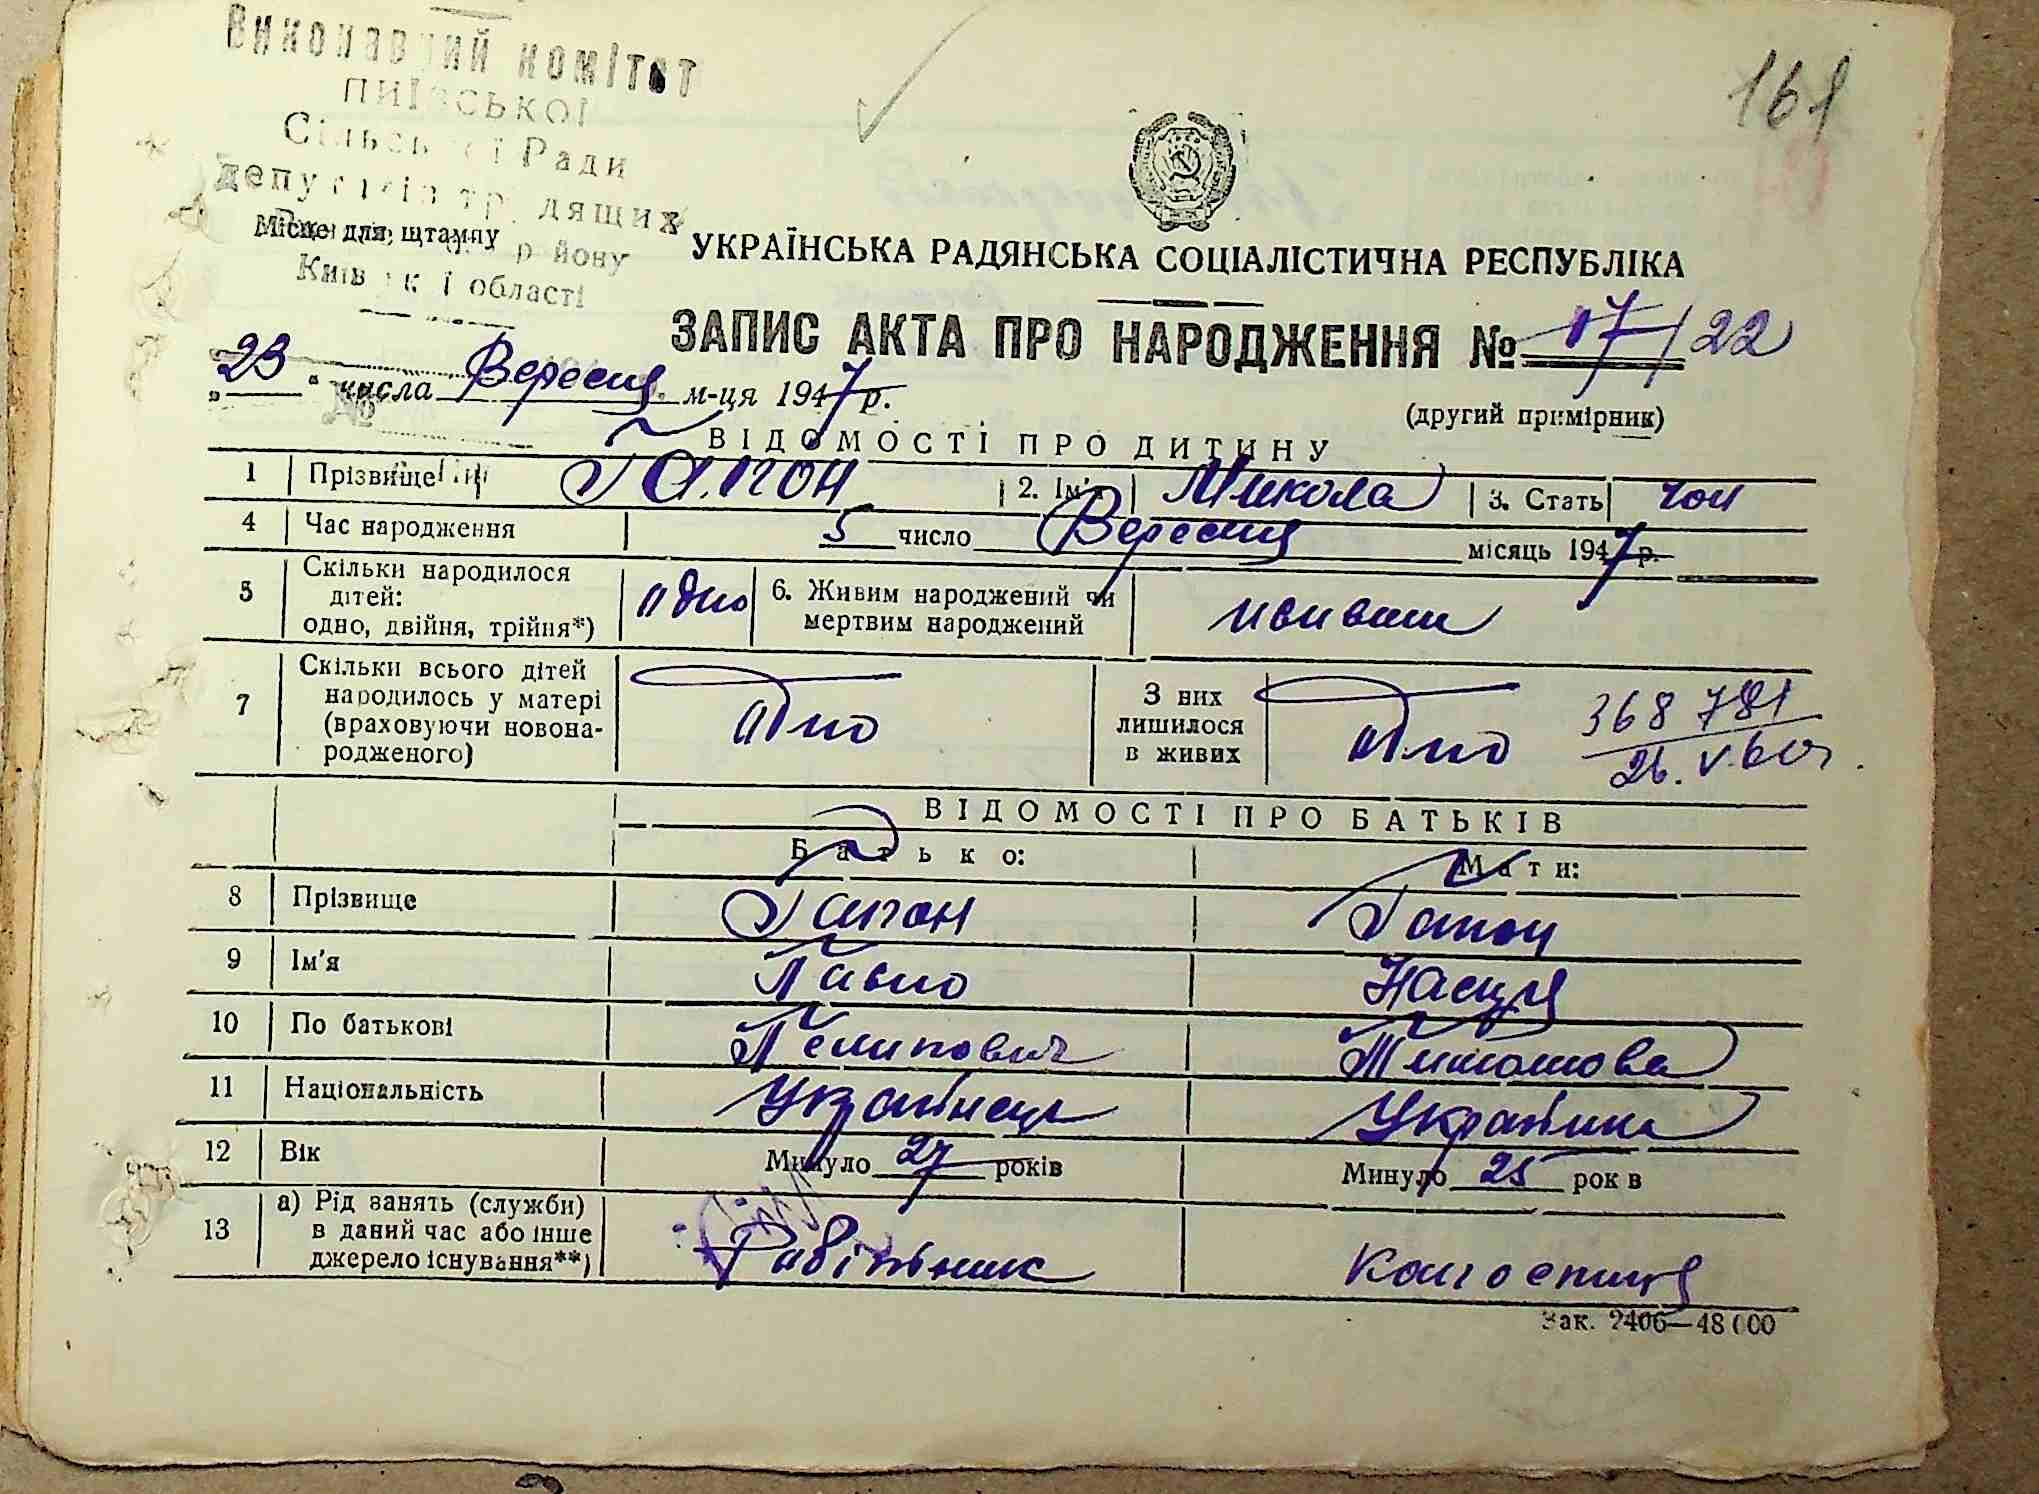 Виконавчий комітет
161
Сільської Ради
депутатів трудящих
Місце для штампу району
Київської області
УКРАЇНСЬКА РАДЯНСЬКА СОЦІАЛІСТИЧНА РЕСПУБЛІКА
ЗАПИС АКТА ПРО НАРОДЖЕННЯ № 17/22
„23“ числа Вересня м-ця 1947 р.
№
(другий примірник)
ВІДОМОСТІ ПРО ДИТИНУ
1 Прізвище Гапон 2. Ім'я Микола 3. Стать чол
4 Час народження 5 число Вересня місяць 1947 р.
5 Скільки народилося дітей: одно, двійня, трійня*) одно 6. Живим народжений чи мертвим народжений живим
7 Скільки всього дітей народилось у матері (враховуючи новонародженого) одно З них лишилося в живих одно
368 781
26.V.60р.
ВІДОМОСТІ ПРО БАТЬКІВ
Батько: Мати:
8 Прізвище Гапон Гапон
9 Ім'я Павло Насця
10 По батькові Пелипович Тимошова
11 Національність Українець Українка
12 Вік Минуло 27 років Минуло 25 років
13 а) Рід занять (служби) в даний час або інше джерело існування**) Робітьник Колгоспниця
Зак. 2406—48000